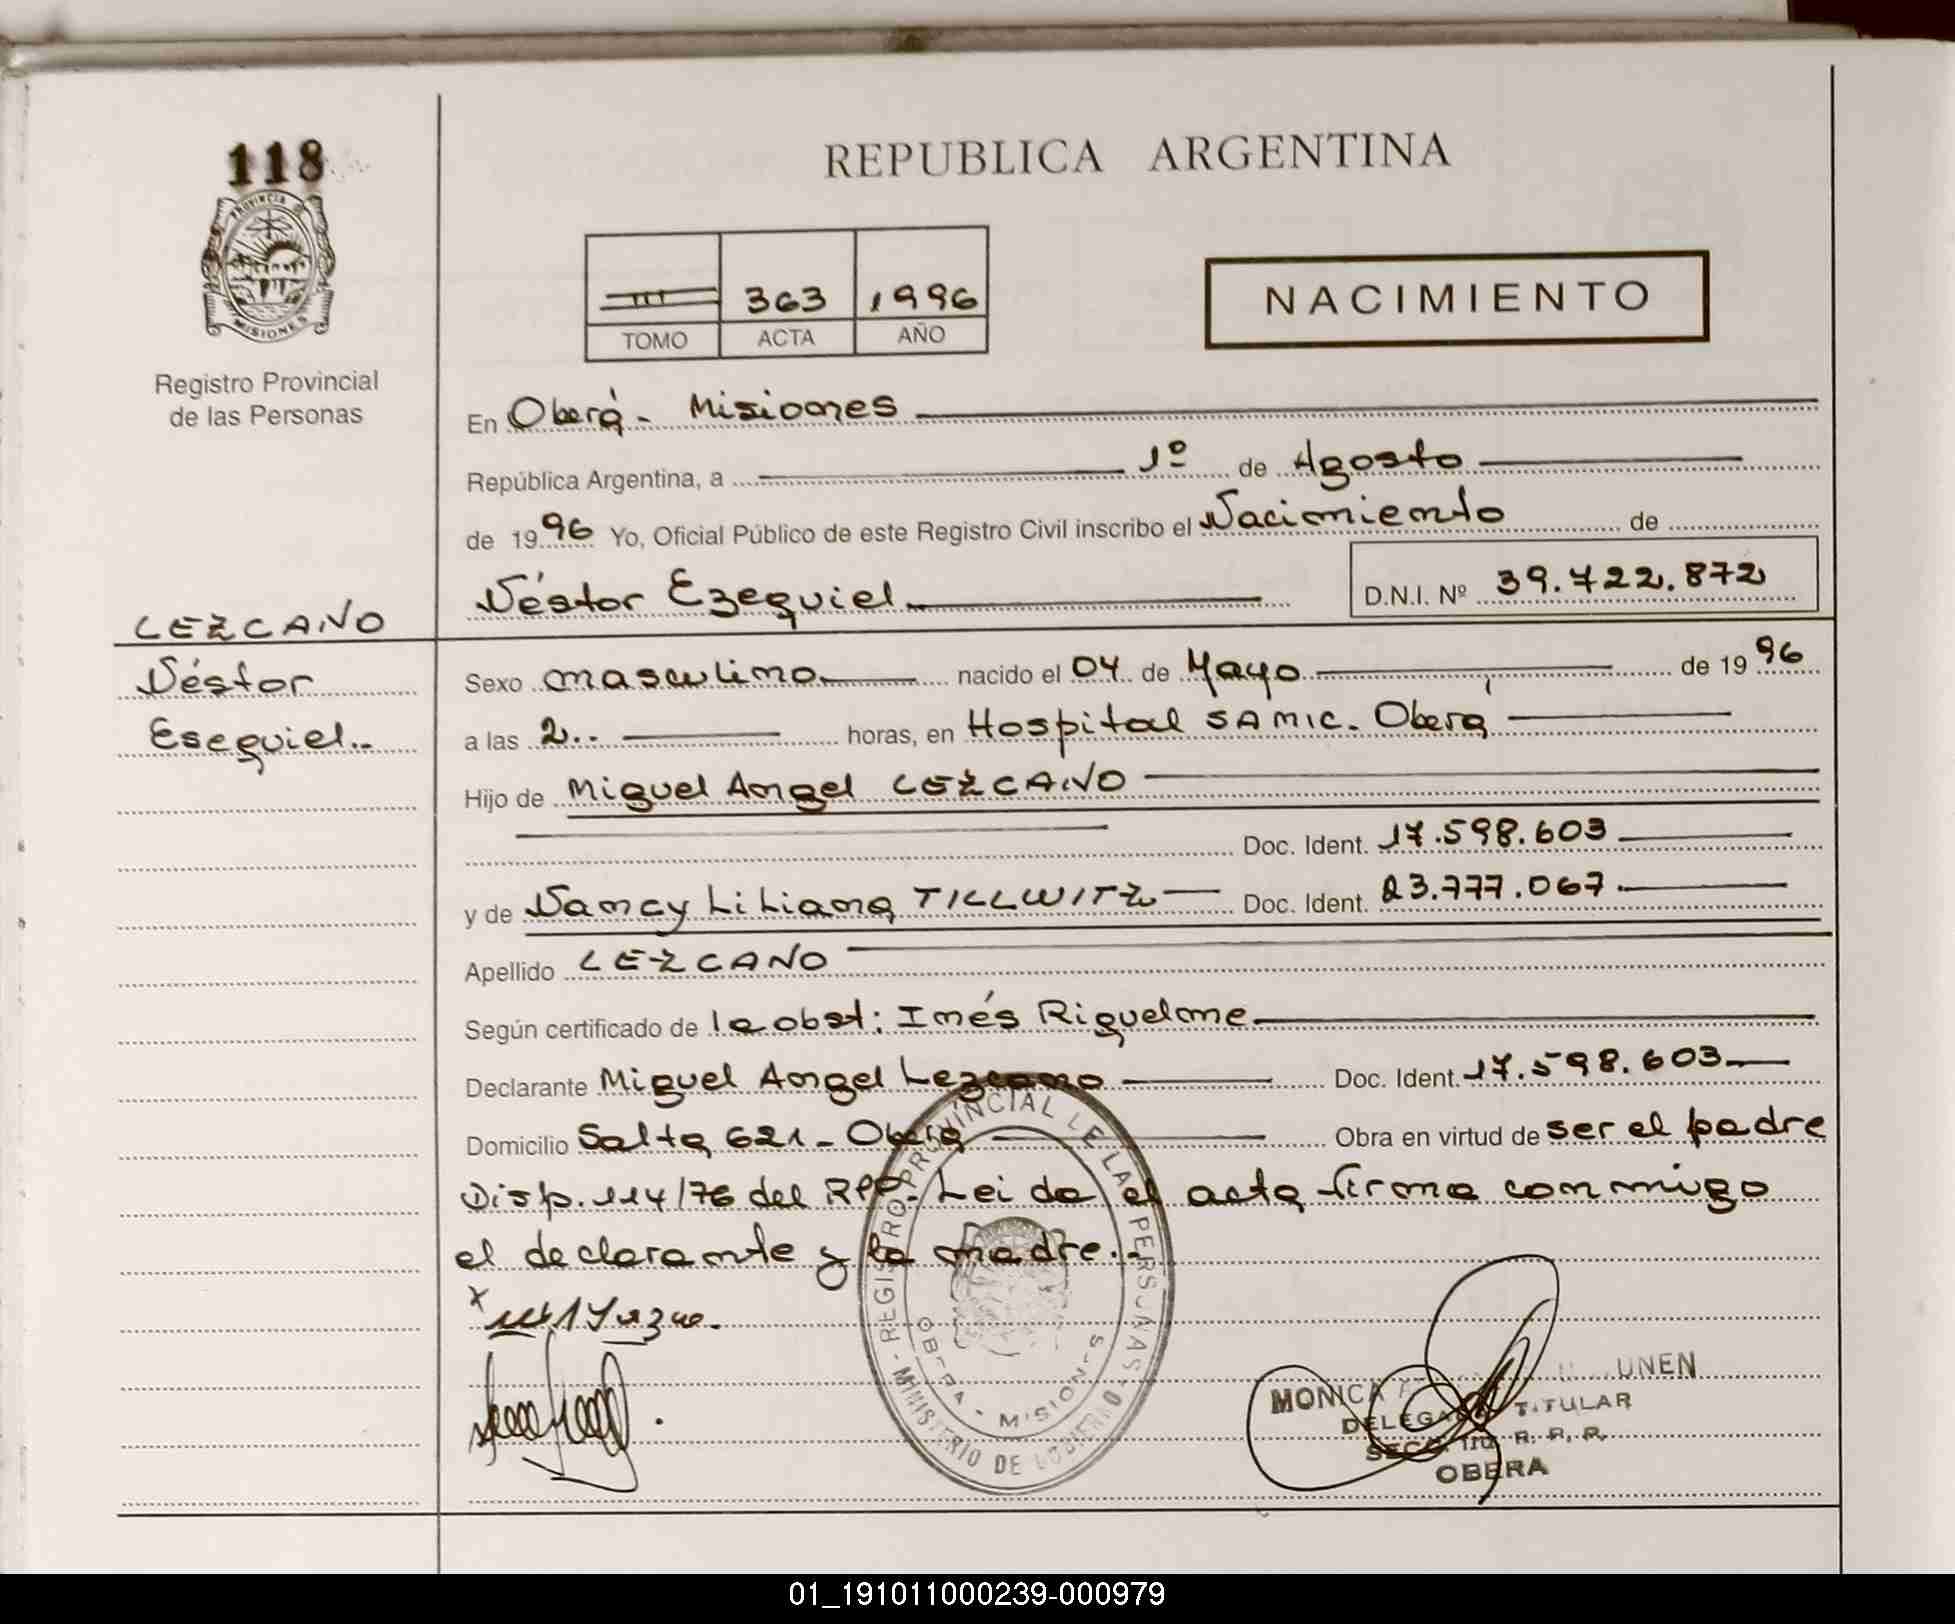 118
PROVINCIA
MISIONES
Registro Provincial
de las Personas
REPUBLICA ARGENTINA
III 363 1996
TOMO ACTA AÑO
NACIMIENTO
En Oberá - Misiones
República Argentina, a 1º de Agosto
de 1996 Yo, Oficial Público de este Registro Civil inscribo el Nacimiento de
Néstor Ezequiel D.N.I. Nº 39.722.872
LEZCANO
Néstor
Esequiel..
Sexo masculino nacido el 04 de Mayo de 1996
a las 2.. horas, en Hospital SAMIC. Oberá
Hijo de Miguel Angel LEZCANO
Doc. Ident. 17.598.603
y de Nancy Liliana TILLWITZ Doc. Ident. 23.777.067
Apellido LEZCANO
Según certificado de la obst: Inés Riquelme
Declarante Miguel Angel Lezcano Doc. Ident. 17.598.603
Domicilio Salta 621 - Oberá Obra en virtud de ser el padre
Disp. 114/76 del RPP. Leida el acta firma conmigo
el declarante y la madre..
REGISTRO PROVINCIAL DE LAS PERSONAS
OBERA - MISIONES
MINISTERIO DE GOBIERNO
MONICA
TITULAR
R. P. P.
OBERA
01_191011000239-000979